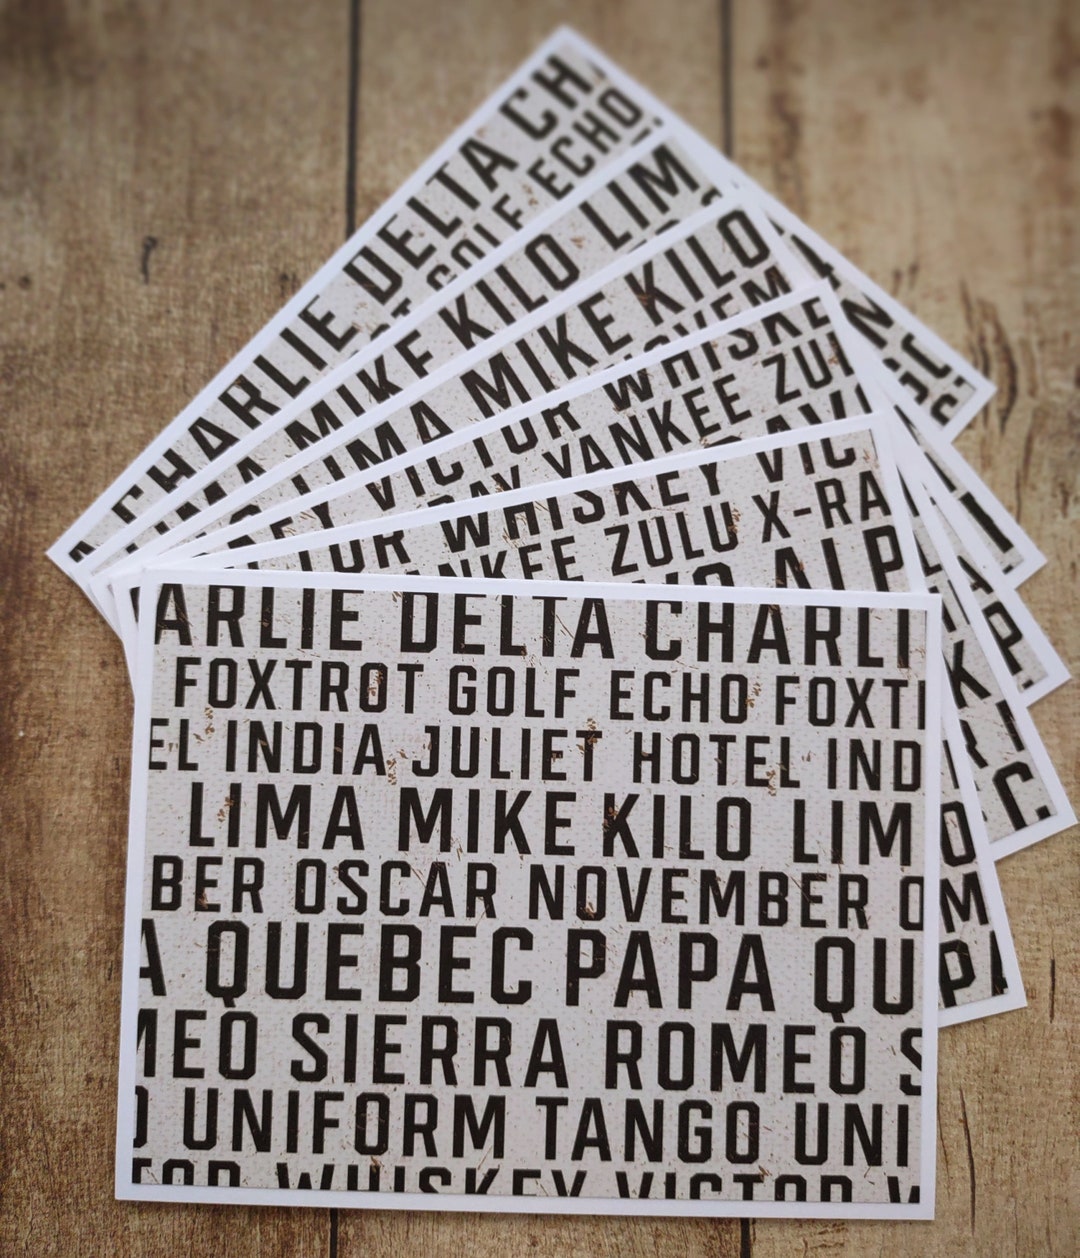 CH
CHARLIE DELTA
GOLF ECHO
MIKE KILO LIM
LIMA MIKE KILO
VICTOR WHISKE
YANKEE ZUL
WHISKEY VIC
ZULU X-RA
ALP
ARLIE DELTA CHARLI
FOXTROT GOLF ECHO FOXT
EL INDIA JULIET HOTEL IND
LIMA MIKE KILO LIM
BER OSCAR NOVEMBER O
A QUEBEC PAPA QU
MEO SIERRA ROMEO S
O UNIFORM TANGO UNI
TOR WHISKEY VICTOR W